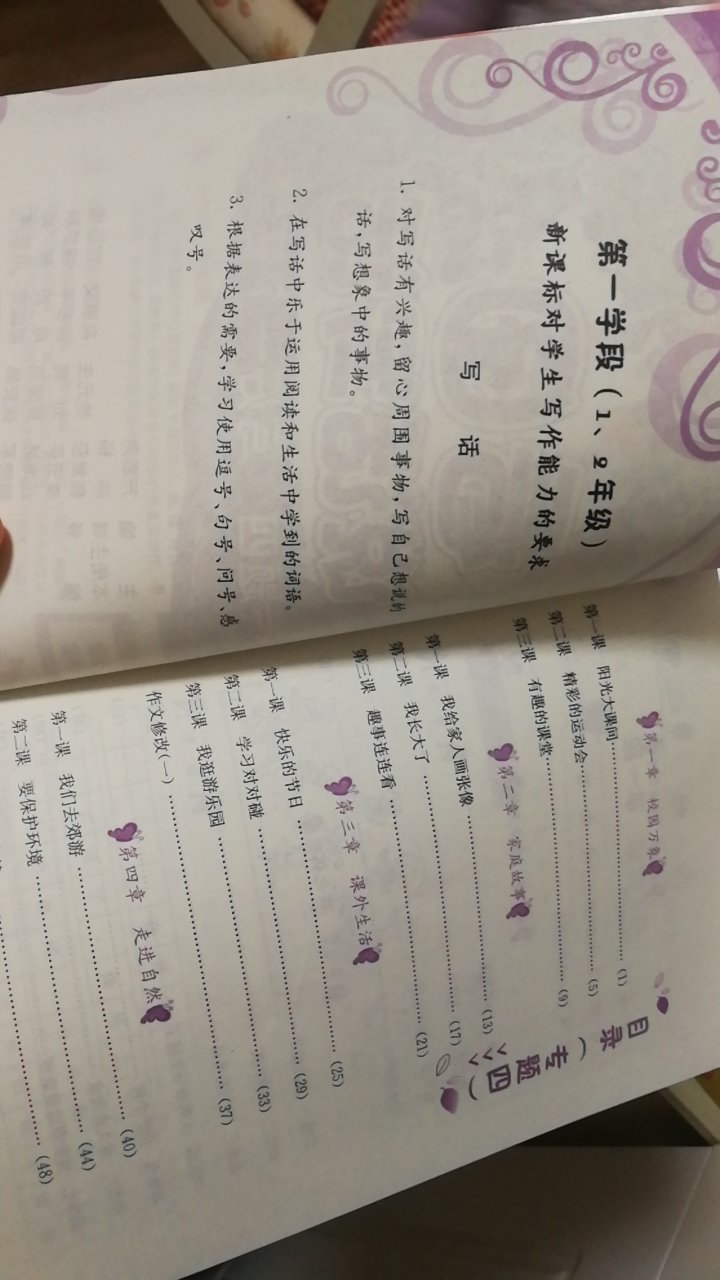 第一学段(1、2年级)
新课标对学生写作能力的要求
写 话
1. 对写话有兴趣,留心周围事物,写自己想说的
话,写想象中的事物。
2. 在写话中乐于运用阅读和生活中学到的词语。
3. 根据表达的需要,学习使用逗号、句号、问号、感
叹号。
目录(专题四)
第一章 校园万象
第一课 阳光大课间……(1)
第二课 精彩的运动会……(5)
第三课 有趣的课堂……(9)
第二章 家庭故事
第一课 我给家人画张像……(13)
第二课 我长大了……(17)
第三课 趣事连连看……(21)
第三章 课外生活
第一课 快乐的节日……(25)
第二课 学习对对碰……(29)
第三课 我逛游乐园……(33)
作文修改(一)……(37)
第四章 走进自然
第一课 我们去郊游……(40)
第二课 要保护环境……(44)
……(48)